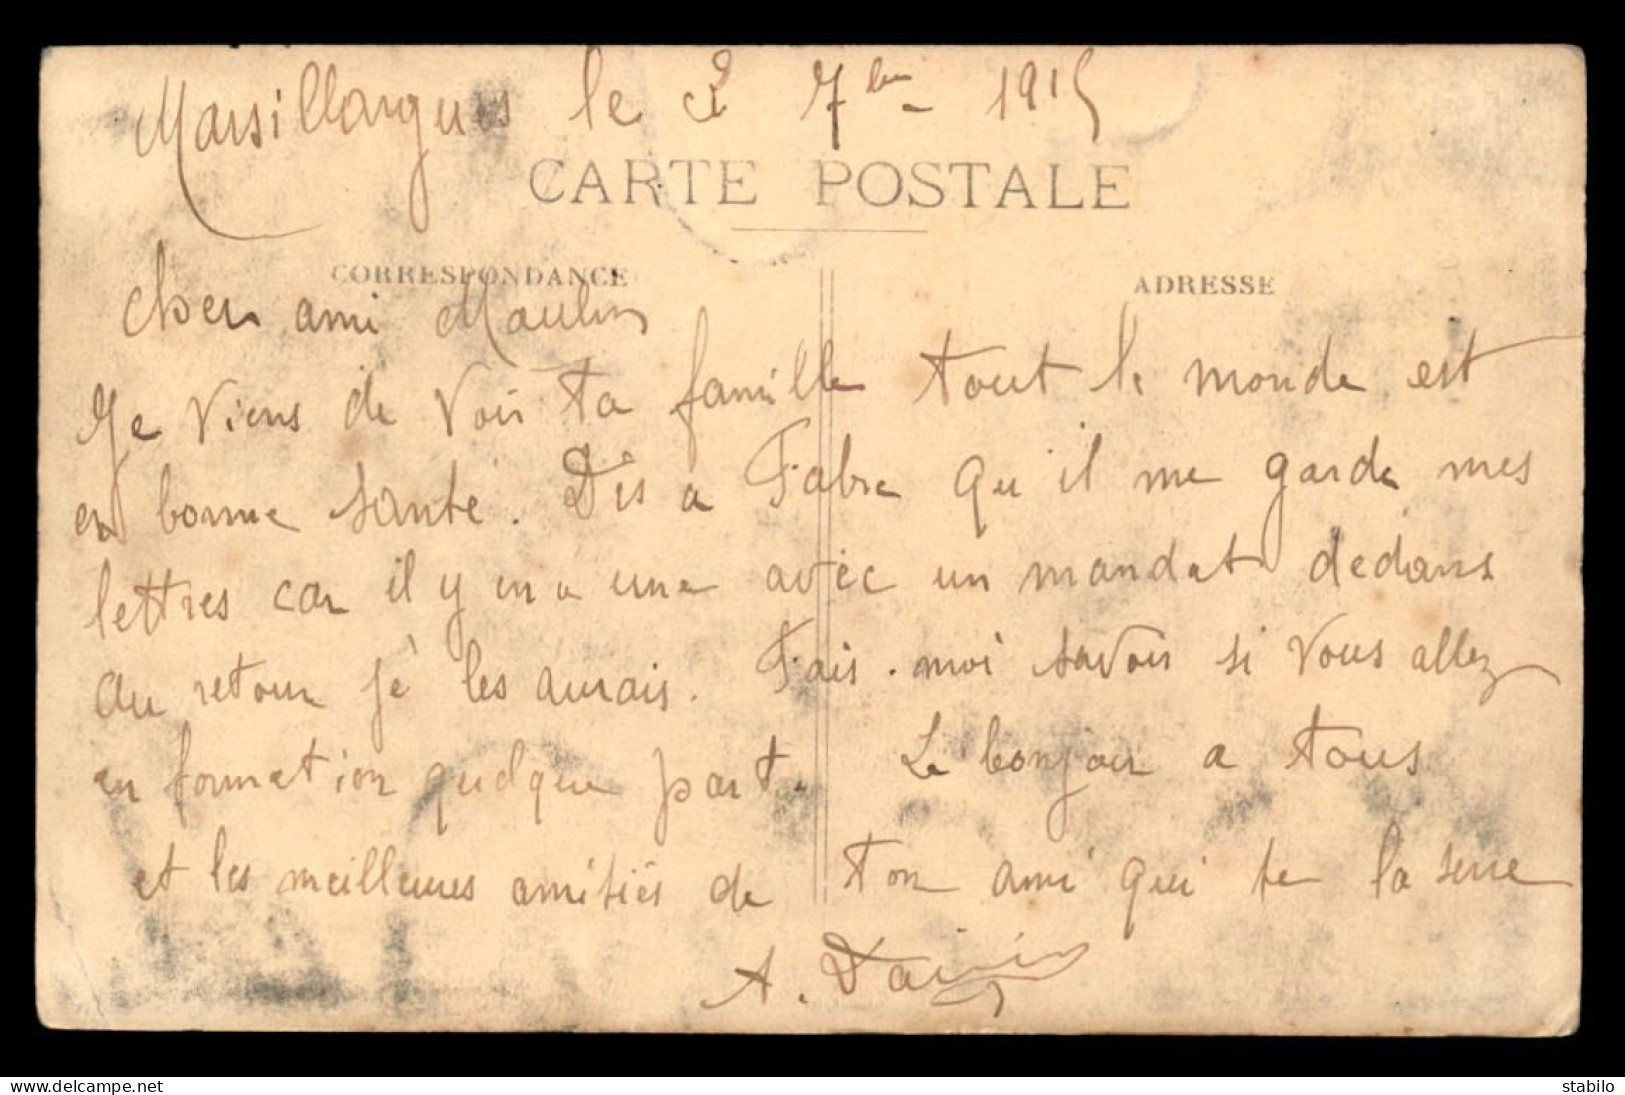 Marsillargues le 2 7bre 1915
CARTE POSTALE
CORRESPONDANCE
ADRESSE
Cher ami Maulin
Je viens de voir ta famille tout le monde est
en bonne santé. Dis a Fabre qu'il me garde mes
lettres car il y en a une avec un mandat dedans
au retour je les aurais. Fais-moi savoir si vous allez
en formation quelque part. Le bonjour a tous
et les meilleures amitiés de ton ami qui te la serre
A.
www.delcampe.net
stabilo